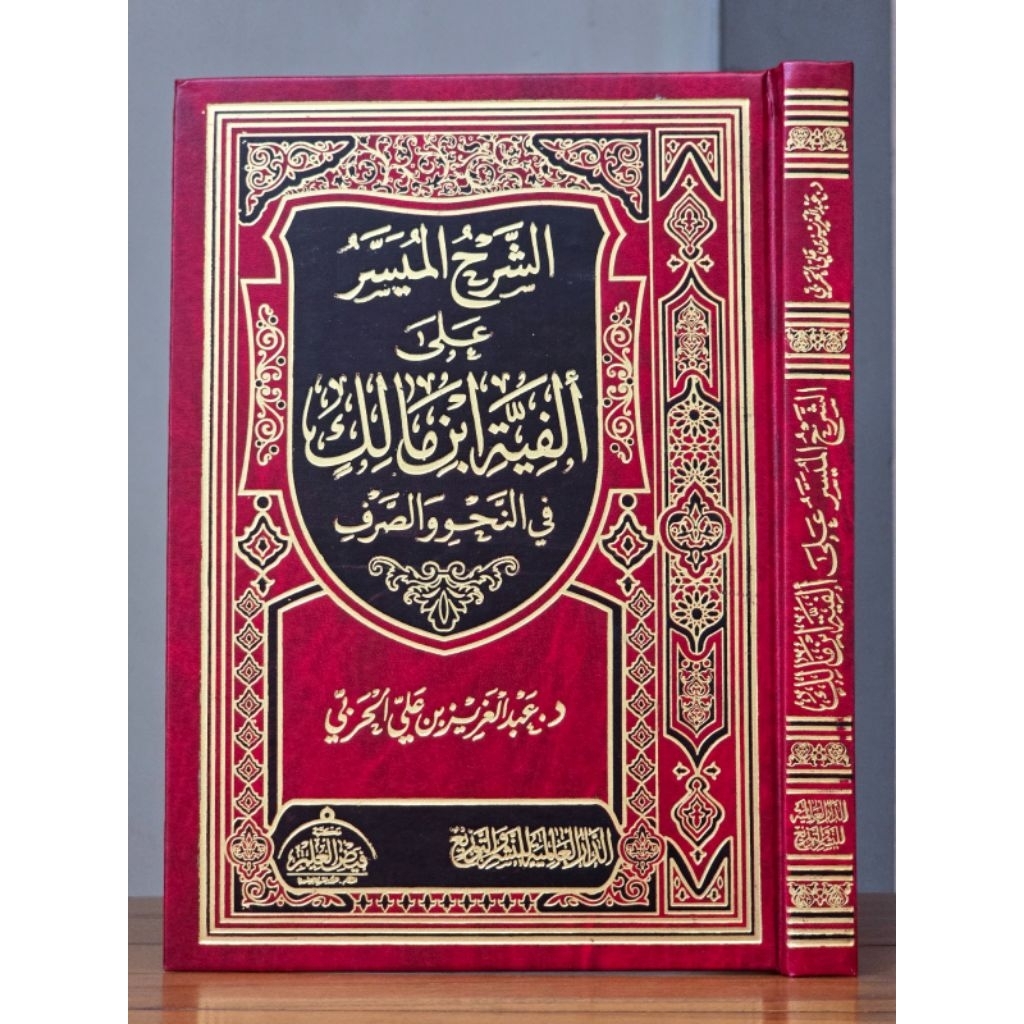 الشَّرْحُ المُيَسَّرُ
عَلَى
أَلْفِيَّةِ ابْنِ مَالِكٍ
في النَّحْوِ والصَّرْفِ
د. عَبْد العَزِيْز بن عَلِيّ الحَرْبِيّ
الدار العالمية للنشر والتوزيع
مكتبة
فيض العليم
د. عبد العزيز بن علي الحربي
الشرح الميسر على ألفية ابن مالك
الدار العالمية
للنشر والتوزيع